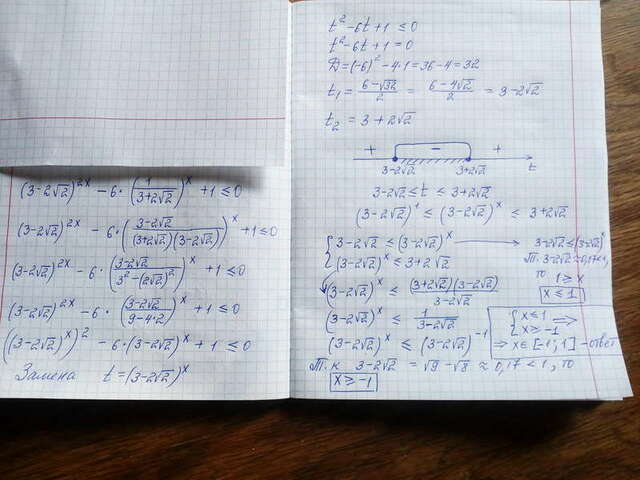 (3-2√2)^2x - 6·(1/(3+2√2))^x + 1 ≤ 0
(3-2√2)^2x - 6·((3-2√2)/((3+2√2)(3-2√2)))^x + 1 ≤ 0
(3-2√2)^2x - 6·((3-2√2)/(3²-(2√2)²))^x + 1 ≤ 0
(3-2√2)^2x - 6·((3-2√2)/(9-4·2))^x + 1 ≤ 0
((3-2√2)^x)² - 6·(3-2√2)^x + 1 ≤ 0
Замена t=(3-2√2)^x
t²-6t+1 ≤ 0
t²-6t+1=0
D=(-6)²-4·1=36-4=32
t₁ = (6-√32)/2 = (6-4√2)/2 = 3-2√2
t₂ = 3+2√2
+ - +
3-2√2 3+2√2 t
3-2√2 ≤ t ≤ 3+2√2
(3-2√2)^1 ≤ (3-2√2)^x ≤ 3+2√2
{ 3-2√2 ≤ (3-2√2)^x → 3-2√2 ≤ (3-2√2)^x
(3-2√2)^x ≤ 3+2√2 Т.к. 3-2√2≈0,17<1,
то 1 ≥ x
x ≤ 1
(3-2√2)^x ≤ ((3+2√2)(3-2√2))/(3-2√2)
(3-2√2)^x ≤ 1/(3-2√2)
(3-2√2)^x ≤ (3-2√2)^-1
{ x ≤ 1
x ≥ -1 ⇒
⇒ x∈[-1;1] - ответ
Т.к 3-2√2 = √9-√8 ≈ 0,17 < 1, то
x ≥ -1